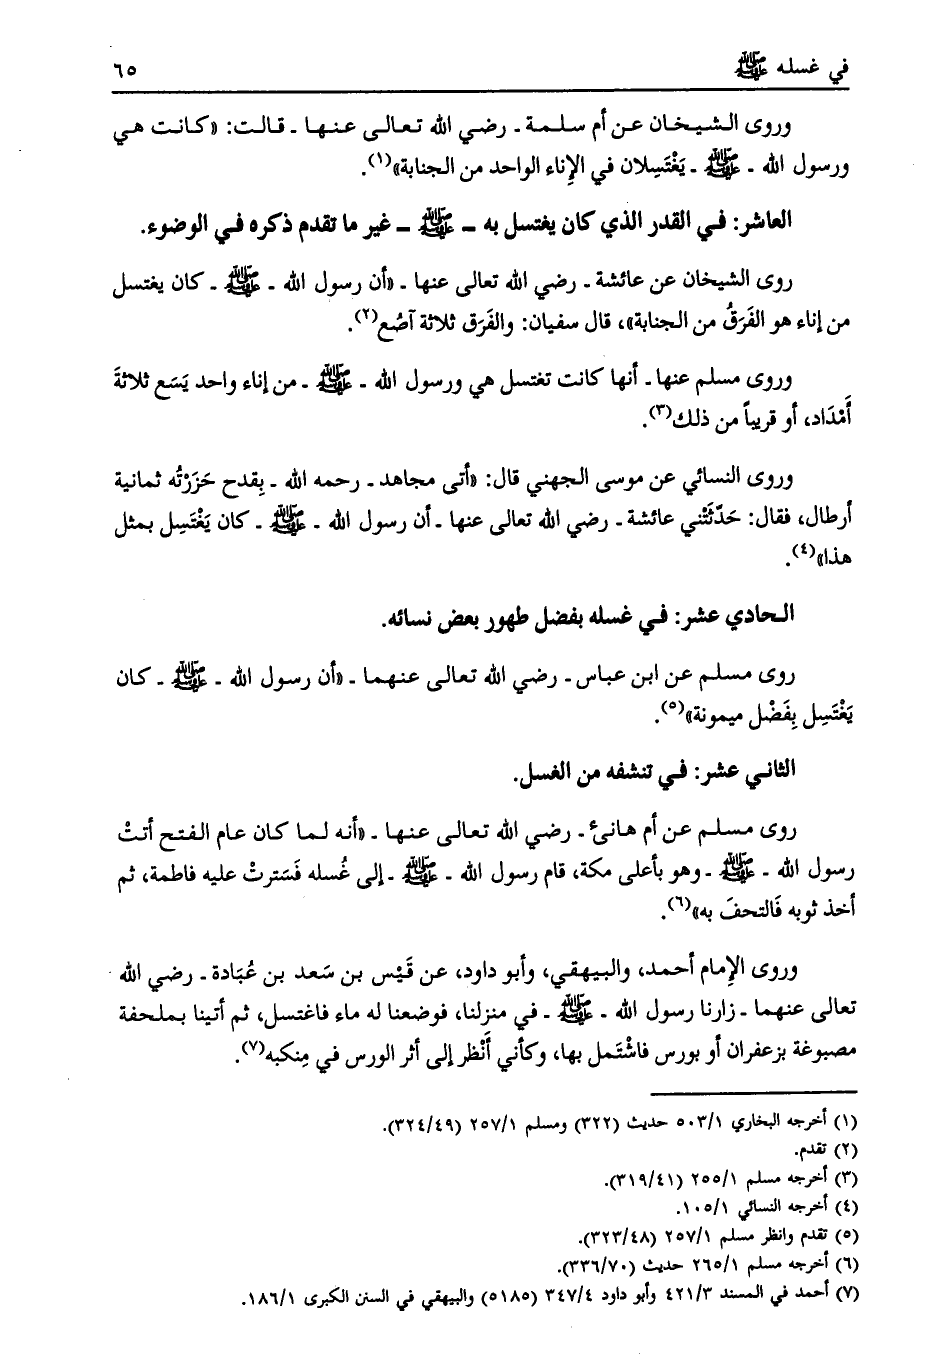 في غسله ﷺ ٦٥
وروى الشيخان عن أم سلمة ـ رضي الله تعالى عنها ـ قالت: «كانت هي
ورسول الله ـ ﷺ ـ يَغْتَسِلان في الإِناء الواحد من الجنابة»(١).
العاشر: في القدر الذي كان يغتسل به ـ ﷺ ـ غير ما تقدم ذكره في الوضوء.
روى الشيخان عن عائشة ـ رضي الله تعالى عنها ـ «أن رسول الله ـ ﷺ ـ كان يغتسل
من إناء هو الفَرَقُ من الجنابة»، قال سفيان: والفَرَق ثلاثة آصُع(٢).
وروى مسلم عنها ـ أنها كانت تغتسل هي ورسول الله ـ ﷺ ـ من إناء واحد يَسَع ثلاثةَ
أَمْدَاد، أو قريباً من ذلك(٣).
وروى النسائي عن موسى الجهني قال: «أتى مجاهد ـ رحمه الله ـ بِقدح حَزَرْتُه ثمانية
أرطال، فقال: حَدّثَتْني عائشة ـ رضي الله تعالى عنها ـ أن رسول الله ـ ﷺ ـ كان يَغْتَسِل بمثل
هذا»(٤).
الحادي عشر: في غسله بفضل طهور بعض نسائه.
روى مسلم عن ابن عباس ـ رضي الله تعالى عنهما ـ «أن رسول الله ـ ﷺ ـ كان
يَغْتَسِل بِفَضْل ميمونة»(٥).
الثاني عشر: في تنشفه من الغسل.
روى مسلم عن أم هانئ ـ رضي الله تعالى عنها ـ «أنه لما كان عام الفتح أتتْ
رسول الله ـ ﷺ ـ وهو بأعلى مكة، قام رسول الله ـ ﷺ ـ إلى غُسله فَسَترتْ عليه فاطمة، ثم
أخذ ثوبه فَالتحفَ به»(٦).
وروى الإِمام أحمد، والبيهقي، وأبو داود، عن قَيْس بن سَعد بن عُبَادة ـ رضي الله
تعالى عنهما ـ زارنا رسول الله ـ ﷺ ـ في منزلنا، فوضعنا له ماء فاغتسل، ثم أتينا بملحفة
مصبوغة بزعفران أو بورس فاشْتَمل بها، وكأني أَنْظر إلى أثر الورس في مِنكبه(٧).
(١) أخرجه البخاري ٥٠٣/١ حديث (٣٢٢) ومسلم ٢٥٧/١ (٣٢٤/٤٩).
(٢) تقدم.
(٣) أخرجه مسلم ٢٥٥/١ (٣١٩/٤١).
(٤) أخرجه النسائي ١٠٥/١.
(٥) تقدم وانظر مسلم ٢٥٧/١ (٣٢٣/٤٨).
(٦) أخرجه مسلم ٢٦٥/١ حديث (٣٣٦/٧٠).
(٧) أحمد في المسند ٤٢١/٣ وأبو داود ٣٤٧/٤ (٥١٨٥) والبيهقي في السنن الكبرى ١٨٦/١.